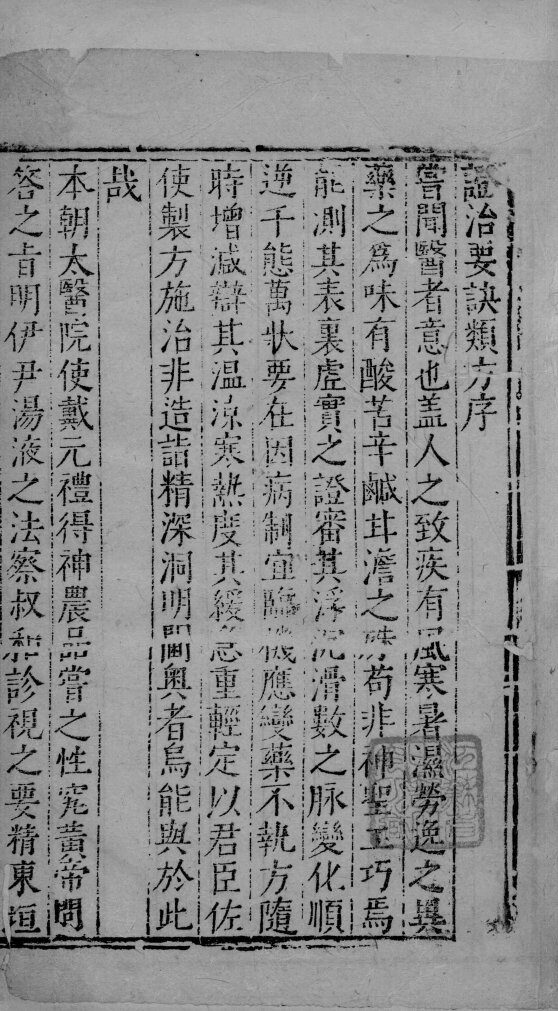 證治要訣類方序
嘗聞醫者意也盖人之致疾有風寒暑濕勞逸之異
藥之爲味有酸苦辛鹹甘澹之殊苟非神聖工巧焉
能測其表裏虛實之證審其浮沉滑數之脉變化順
逆千態萬狀要在因病制宜臨機應變藥不執方隨
時增減辯其温涼寒熱度其緩急重輕定以君臣佐
使製方施治非造詣精深洞明閫奥者烏能與於此
哉
本朝太醫院使戴元禮得神農品嘗之性究黃帝問
答之旨明伊尹湯液之法察叔和診視之要精東垣